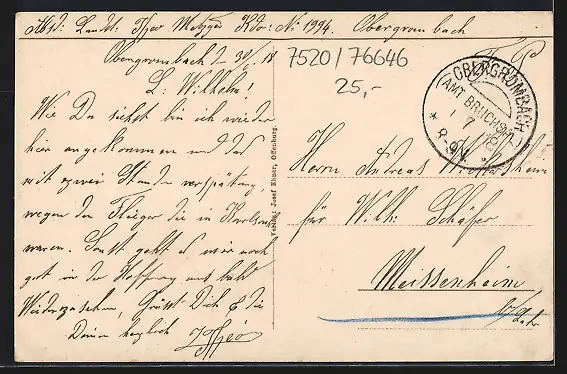 Abs: Landst. Theo Metzger Kdo: № 1994. Obergrombach
Obergrombach d. 30/ 18
L. Wilhelm!
Wie Du siehst bin ich wieder
hier angekommen und das
mit zwei Stunden verspätung,
wegen den Flieger die in Karlsruhe
waren. Sonst geht es mir noch
gut in der Hoffnung auf bald
Wiedersehen, Grüsst Dich & die
Deinen herzlich Theo
7520/76646
25,-
OBERGROMBACH
(AMT BRUCHSAL)
8-9V.
Verlag: Josef Ebner, Offenburg.
Herrn Andreas
für Wilh. Schäfer
Meissenheim
b/ Lahr